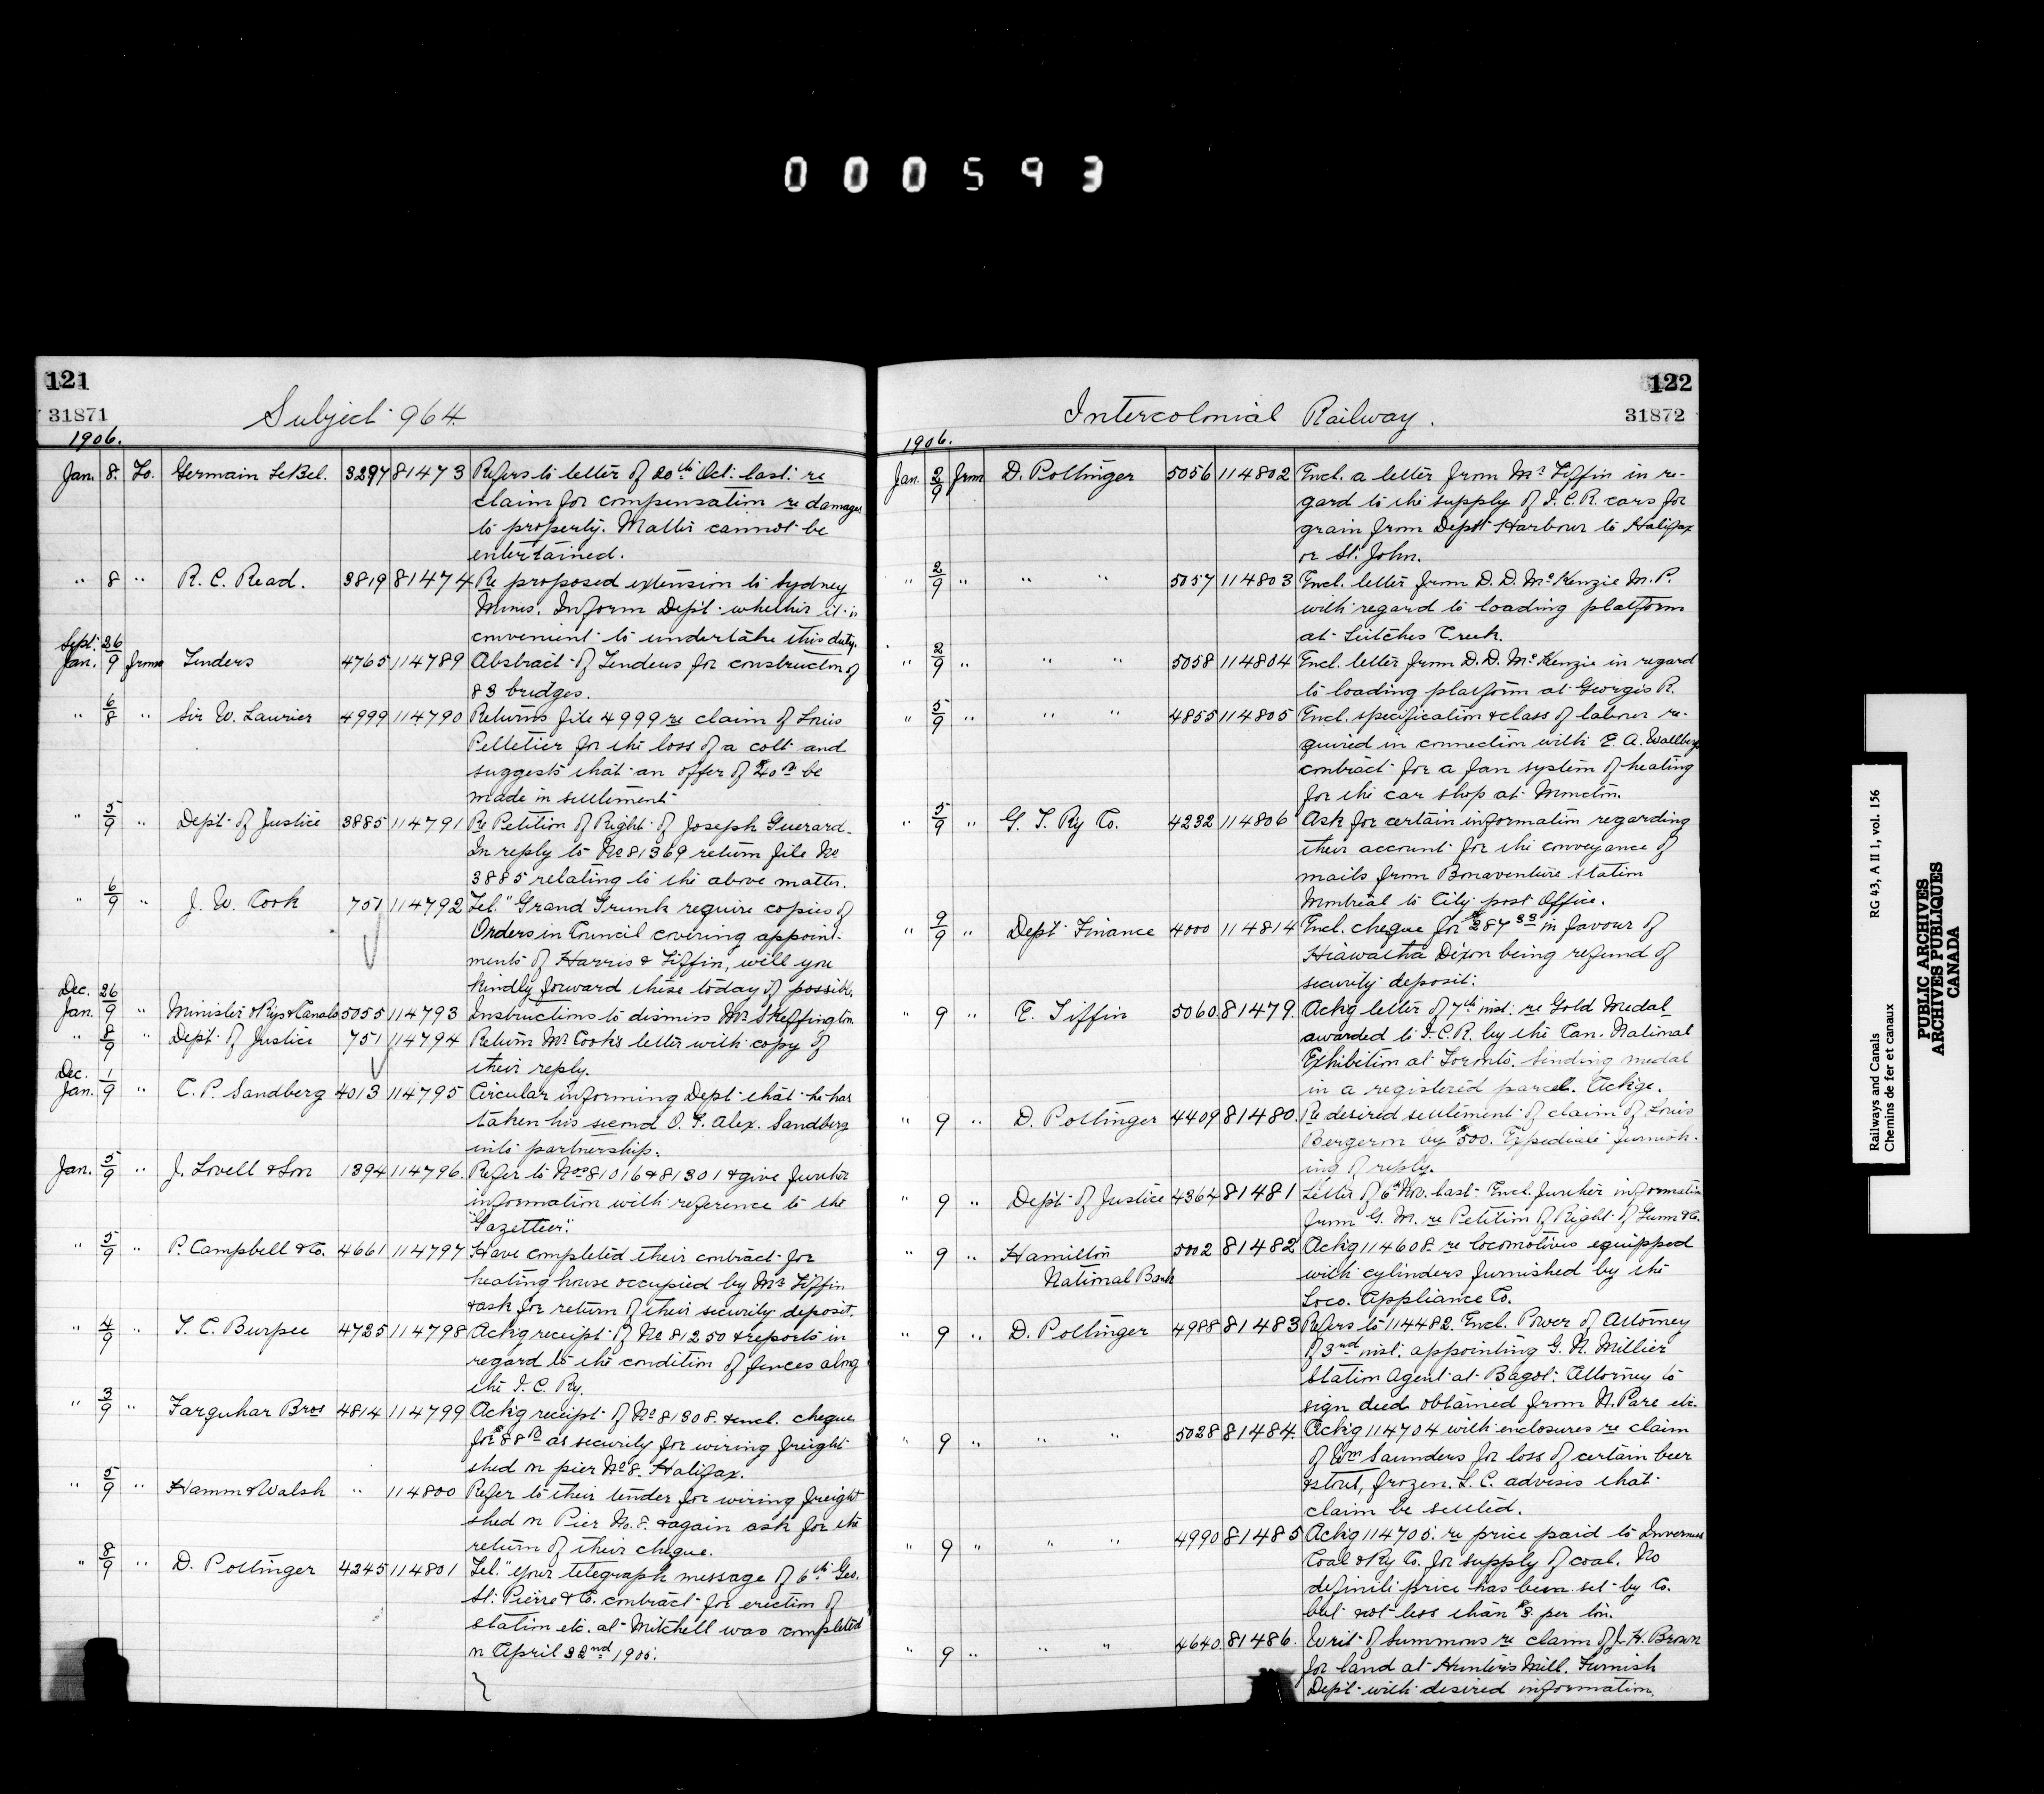 000593
121
31871
Subject 964.
1906.
Jan. 8. To. Germain LeBel. 3297 81473 Refers to letter of 20th Oct. last. re
claim for compensation re damages
to property. Matter cannot be
entertained.
" 8 " R. C. Read. 3819 81474 Re proposed extension to Sydney
Mines. Inform Dept. whether it is
convenient to undertake this duty.
Sept. 26
Jan. 9 from Tenders 4765 114789 Abstract of Tenders for construction of
83 bridges.
" 6/8 " Sir W. Laurier 4999 114790 Returns file 4999 re claim of Louis
Pelletier for the loss of a colt and
suggests that an offer of $40 be
made in settlement
" 5/9 " Dept. of Justice 3885 114791 Re Petition of Right of Joseph Guerard.
In reply to No 81369 return file No
3885 relating to the above matter.
" 6/9 " J. W. Cook 751 114792 Tel. "Grand Trunk require copies of
Orders in Council covering appoint-
ments of Harris & Tiffin, will you
kindly forward these today if possible.
Dec. 26
Jan. 9 " Minister Rys & Canals 5055 114793 Instructions to dismiss Mr. Skeffington
" 8/9 " Dept. of Justice 751 114794 Return Mr Cook's letter with copy of
their reply.
Dec. 1
Jan. 9 " C. P. Sandberg 4013 114795 Circular informing Dept. that he has
taken his second O. F. Alex. Sandberg
into partnership.
Jan. 5/9 " J. Lovell & Son 1394 114796 Refer to Nos 81016 & 81301 & give further
information with reference to the
"Gazetteer".
" 5/9 " P. Campbell & Co. 4661 114797 Have completed their contract for
heating house occupied by Mr Tiffin
& ask for return of their security deposit.
" 4/9 " T. C. Burpee 4725 114798 Ackg receipt of No 81250 & reports in
regard to the condition of fences along
the I. C. Ry.
" 3/9 " Farquhar Bros 4814 114799 Ackg receipt of No 81308. & encl. cheque
for $88 as security for wiring freight
shed on pier No 8. Halifax.
" 5/9 " Hamm & Walsh " 114800 Refer to their tender for wiring freight
shed on Pier No. 8. & again ask for the
return of their cheque.
" 8/9 " D. Pottinger 4245 114801 Tel. "Your telegraph message of 6th Geo.
St. Pierre & Co. contract for erection of
station etc. at Mitchell was completed
on April 22nd 1905.
122
31872
Intercolonial Railway.
1906.
Jan. 2/9 from D. Pottinger 5056 114802 Encl. a letter from Mr Tiffin in re-
gard to the supply of I. C. R. cars for
grain from Depot Harbour to Halifax
or St. John.
" 2/9 " " " 5057 114803 Encl. letter from D. D. McKenzie M. P.
with regard to loading platform
at Leitches Creek.
" 2/9 " " " 5058 114804 Encl. letter from D. D. McKenzie in regard
to loading platform at Georges R.
" 5/9 " " " 4855 114805 Encl. specification & class of labour re-
quired in connection with E. A. Wallberg
contract for a fan system of heating
for the car shop at Moncton.
" 5/9 " G. T. Ry Co. 4232 114806 Ask for certain information regarding
their account for the conveyance of
mails from Bonaventure Station
Montreal to City post Office.
" 9/9 " Dept. Finance 4000 114814 Encl. cheque for $287 33 in favour of
Hiawatha Dixon being refund of
security deposit.
" 9 " E. Tiffin 5060 81479. Ackg letter of 7th inst. re Gold Medal
awarded to I. C. R. by the Can. National
Exhibition at Toronto. Sending medal
in a registered parcel. Ackge.
" 9 " D. Pottinger 4409 81480. Re desired settlement of claim of Louis
Bergeron by $500. Expediate furnish-
ing of reply.
" 9 " Dept. of Justice 4364 81481 Letter of 6th Nov. last. Encl. further information
from G. M. re Petition of Right of Gunn & Co.
" 9 " Hamilton 5002 81482 Ackg 114608 re locomotives equipped
National Bank with cylinders furnished by the
Loco. Appliance Co.
" 9 " D. Pottinger 4988 81483 Refers to 114482. Encl. Power of Attorney
of 3rd inst. appointing G. N. Millier
Station Agent at Bagot: Attorney to
sign deed obtained from N. Pare etc.
" 9 " " " 5028 81484. Ackg 114704 with enclosures re claim
of Wm Saunders for loss of certain beer
& stout, frozen. L. C. advises that
claim be settled.
" 9 " " " 4990 81485 Ackg 114705. re price paid to Inverness
Coal & Ry Co. for supply of coal. No
definite price has been set by Co.
but not less than $3. per ton.
" 9 " " " 4640. 81486. Writ of Summons re claim of J. H. Brown
for land at Hunter's Mill. Furnish
Dept. with desired information.
Railways and Canals RG 43, A II 1, vol. 156
Chemins de fer et canaux
PUBLIC ARCHIVES
ARCHIVES PUBLIQUES
CANADA